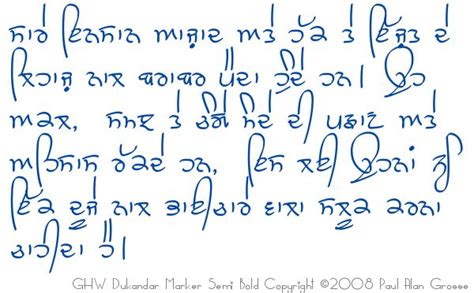 ਸਾਰੇ ਇਨਸਾਨ ਆਜ਼ਾਦ ਅਤੇ ਹੱਕ ਤੇ ਇੱਜ਼ਤ ਦੇ
ਲਿਹਾਜ਼ ਨਾਲ ਬਰਾਬਰ ਪੈਦਾ ਹੁੰਦੇ ਹਨ। ਉਹ
ਅਕਲ, ਸਮਝ ਤੇ ਚੰਗੇ ਮੰਦੇ ਦੀ ਪਛਾਣ ਅਤੇ
ਅਹਿਸਾਸ ਰੱਖਦੇ ਹਨ, ਇਸ ਲਈ ਉਹਨਾਂ ਨੂੰ
ਇੱਕ ਦੂਜੇ ਨਾਲ ਭਾਈਚਾਰੇ ਵਾਲਾ ਸਲੂਕ ਕਰਨਾ
ਚਾਹੀਦਾ ਹੈ।
GHW Dukandar Marker Semi Bold Copyright ©2008 Paul Alan Grosse